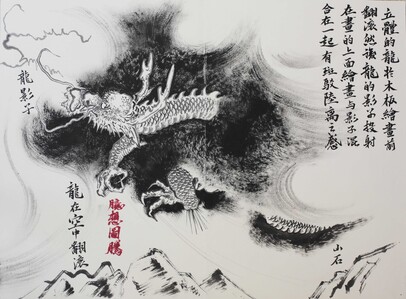 立體的龍於木板繪畫前
翻滾然讓龍的影子投射
在畫的上面繪畫与影子混
合在一起有斑駁陸離之感
龍影子
龍在空中翻滾
臆想圖騰
小石